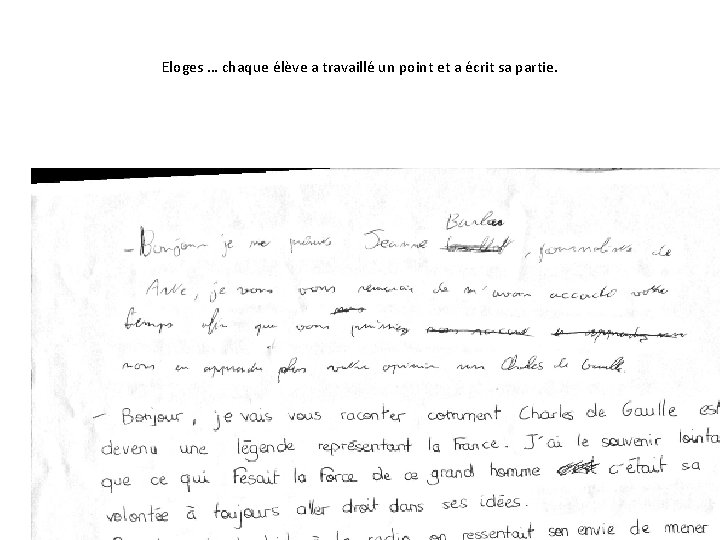 Eloges … chaque élève a travaillé un point et a écrit sa partie.
Barbeo
- Bonjour je me présente Jeanne , journaliste de
Arte, je vous vous remercie de m'avoir accordé votre
temps afin que vous puissiez
nous en apprendre plus votre opinion sur Charles de Gaulle.
- Bonjour, je vais vous raconter comment Charles de Gaulle est
devenu une légende représentant la France. J'ai le souvenir lointa
que ce qui Fesait la Force de ce grand homme c'était sa
volontée à toujours aller droit dans ses idées.
à la radio on ressentait son envie de mener